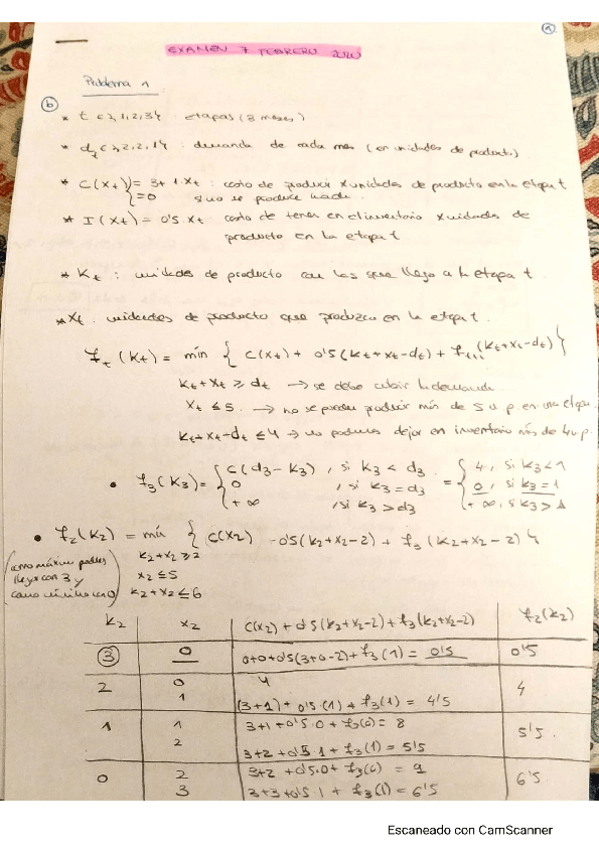 1
EXAMEN 7 FEBRERO 2020
Problema 1
b
* t ∈ {1,2,3} : etapas (3 meses)
* d_t ∈ {2,2,1} : demanda de cada mes (en unidades de producto)
* C(x_t) {= 3+1·x_t : costo de producir x unidades de producto en la etapa t
=0 si no se produce nada.
* I(x_t) = 0'5·x_t costo de tener en el inventario x unidades de
producto en la etapa t
* K_t : unidades de producto con las que llego a la etapa t.
* x_t : unidades de producto que produzco en la etapa t.
f_t(K_t) = mín { C(x_t) + 0'5(K_t+x_t-d_t) + f_{t+1}(K_t+x_t-d_t) }
K_t + x_t ≥ d_t → se debe cubrir la demanda
x_t ≤ 5. → no se puede producir más de 5 u.p. en una etapa
K_t+x_t-d_t ≤ 4 → no podemos dejar en inventario más de 4 u.p.
• f_3(K_3) = { C(d_3-K_3), si K_3 < d_3 = { 4, si K_3<1
0 , si K_3=d_3 0, si K_3=1
+∞ , si K_3>d_3 +∞, si K_3>1
• f_2(K_2) = mín { C(x_2) - 0'5(K_2+x_2-2) + f_3(K_2+x_2-2) }
(como máximo puedes K_2+x_2 ≥ 2
llegar con 3 y x_2 ≤ 5
como mínimo 0) K_2+x_2 ≤ 6
K_2 x_2 C(x_2)+0'5(K_2+x_2-2)+f_3(K_2+x_2-2) f_2(K_2)
3 0 0+0+0'5(3+0-2)+f_3(1) = 0'5 0'5
2 0 4 4
1 (3+1)+0'5·(1)+f_3(1) = 4'5
1 1 3+1+0'5·0+f_3(0) = 8 5'5.
2 3+2+0'5·1+f_3(1) = 5'5
0 2 3+2+0'5·0+f_3(0) = 9 6'5
3 3+3+0'5·1+f_3(1) = 6'5
Escaneado con CamScanner